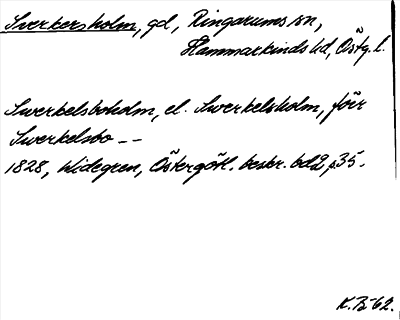 Sverkersholm, gd, Ringarums sn,
Hammarkinds hd, Östg. l.
Swerkelsboholm, el. Swerkelsholm, förr
Swerkelsbo --
1828, Widegren, Östergötl. beskr. bd 2, s. 35.
K.B-62.